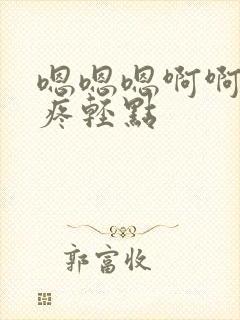 嗯嗯嗯啊啊
疼輕點
郭富收